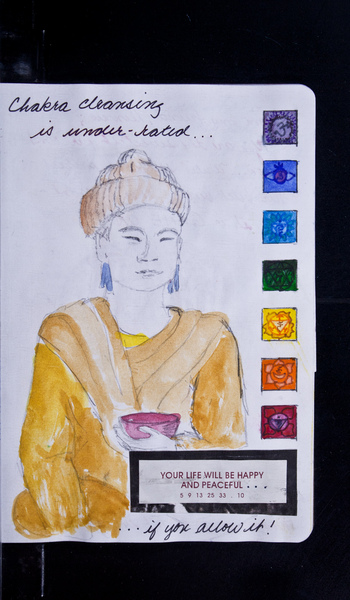 Chakra cleansing
is under-rated...
YOUR LIFE WILL BE HAPPY
AND PEACEFUL...
5 9 13 25 33 . 10
...if you allow it!